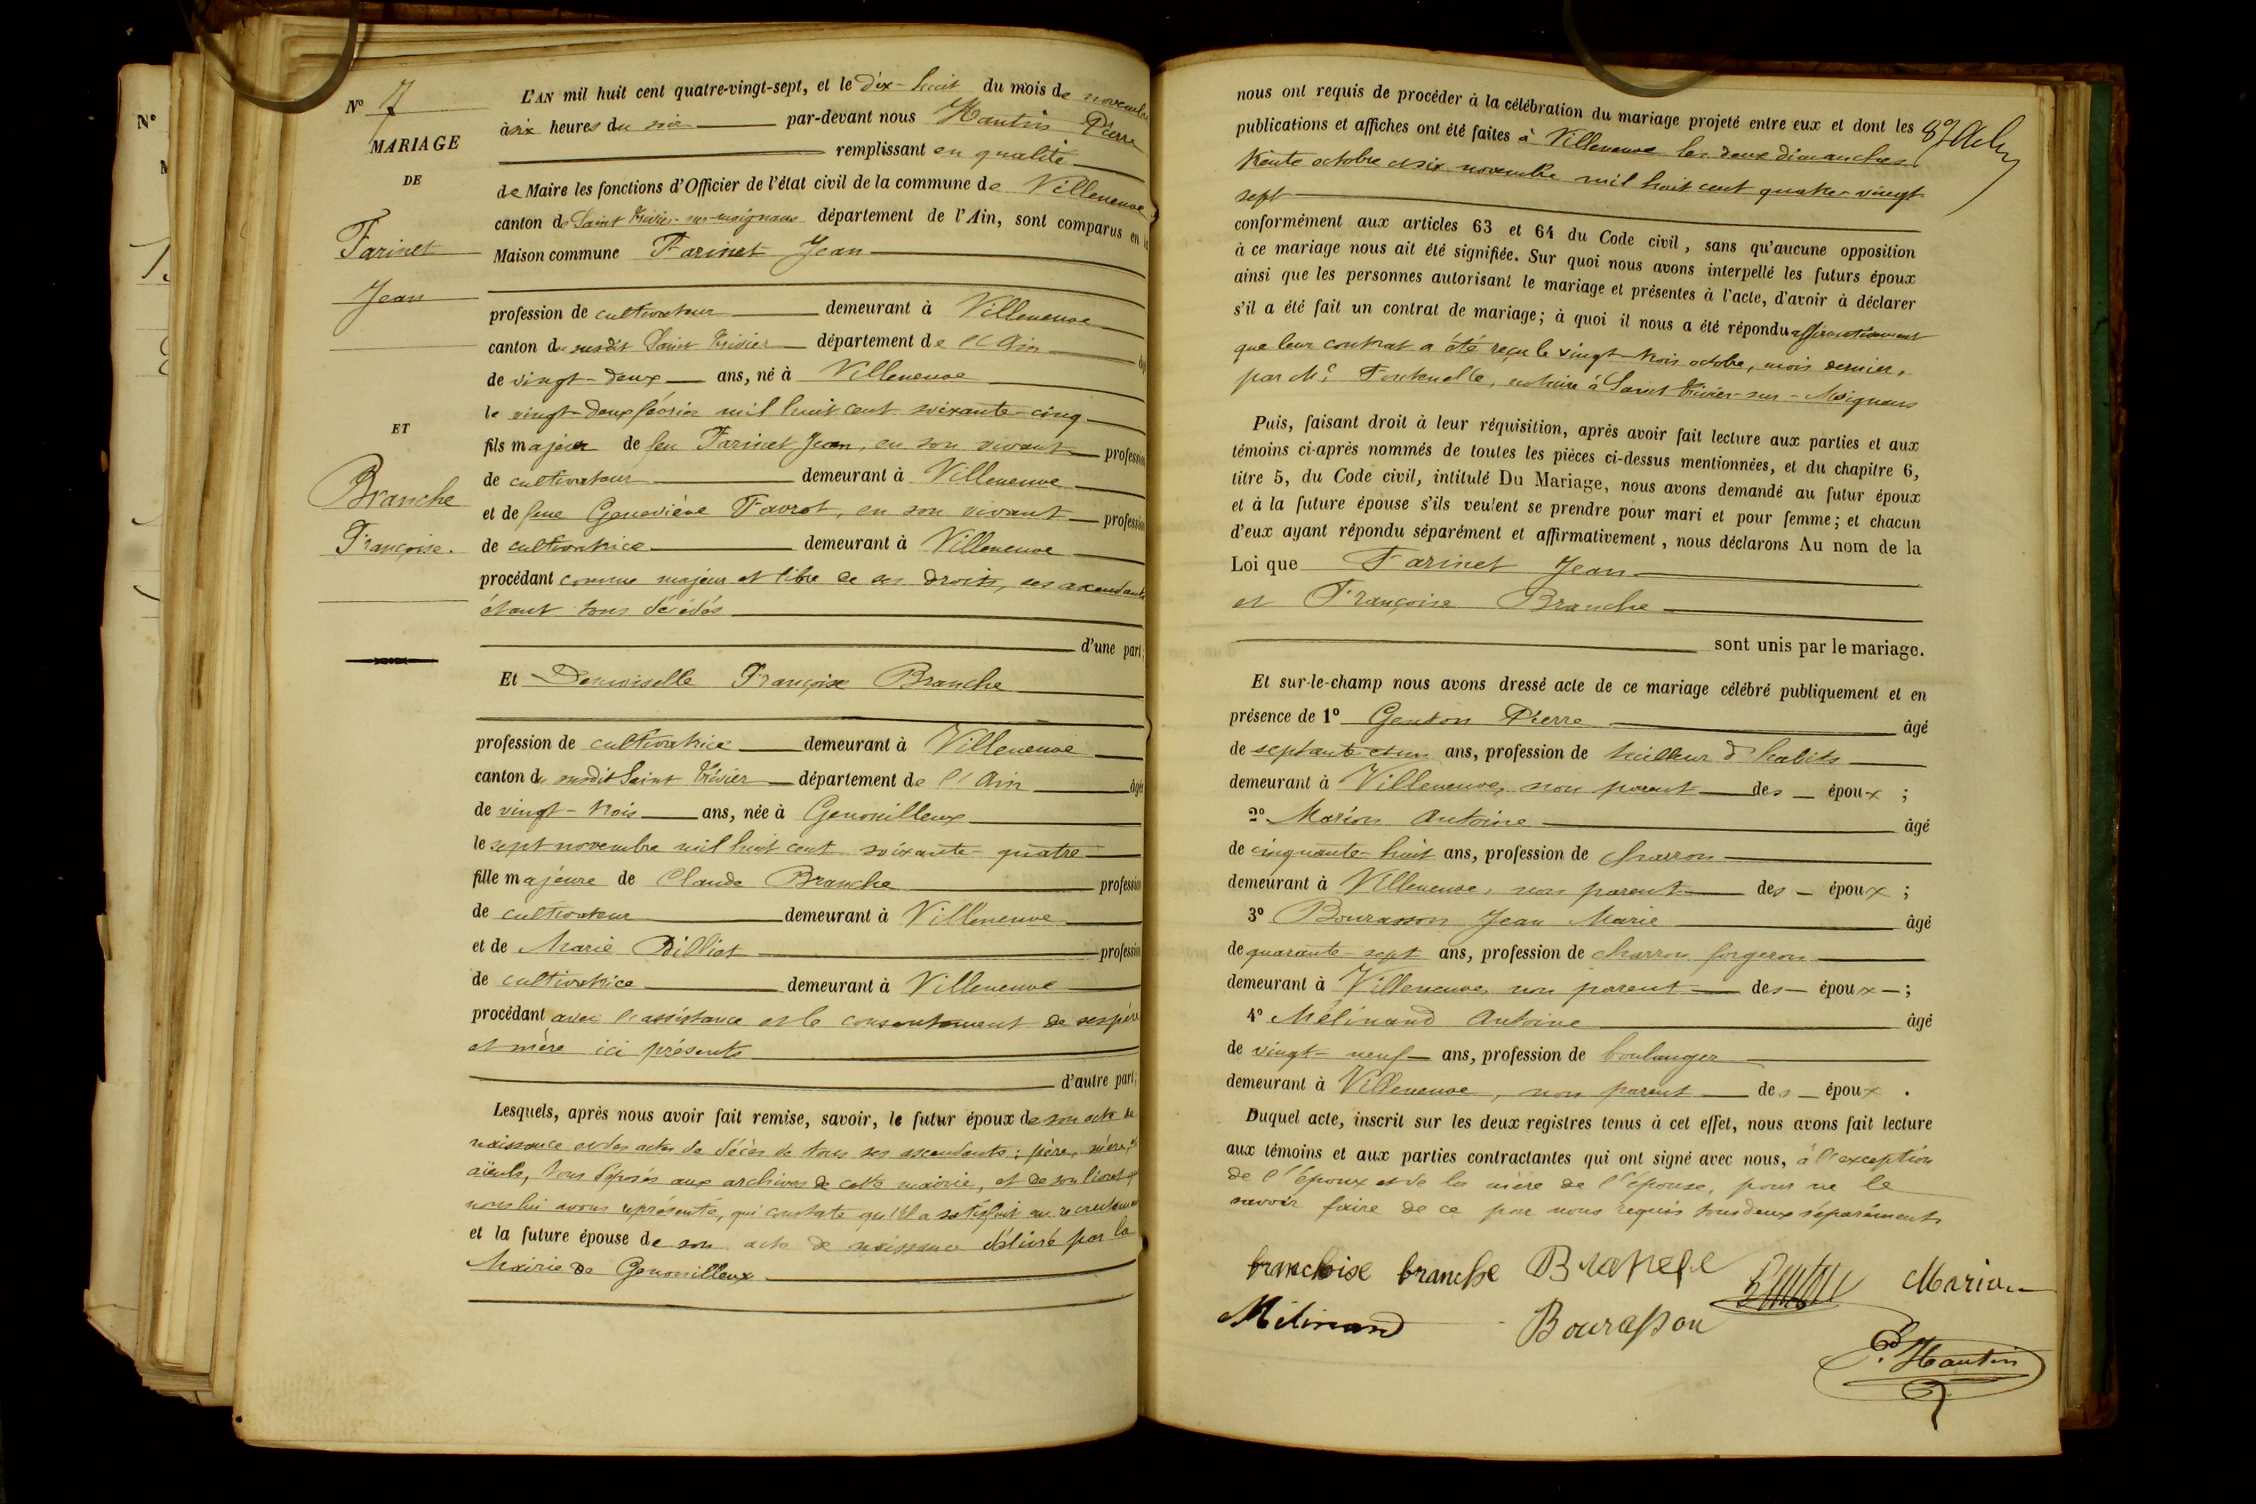 N°
N° 7
MARIAGE
DE
Farinet
Jean
ET
Branche
Françoise.
L'AN mil huit cent quatre-vingt-sept, et le dix-huit du mois de novembre
à six heures du soir par-devant nous Hautin Pierre
remplissant en qualité
de Maire les fonctions d'Officier de l'état civil de la commune de Villeneuve
canton de Saint Trivier-sur-moignans département de l'Ain, sont comparus en la
Maison commune Farinet Jean
profession de cultivateur demeurant à Villeneuve
canton du susdit Saint Trivier département de l'Ain âgé
de vingt-deux ans, né à Villeneuve
le vingt-deux février mil huit cent soixante-cinq
fils majeur de feu Farinet Jean, en son vivant profession
de cultivateur demeurant à Villeneuve
et de feue Geneviève Favrot, en son vivant profession
de cultivatrice demeurant à Villeneuve
procédant comme majeur et libre de ses droits, ses ascendants
étant tous décédés
d'une part;
Et Demoiselle Françoise Branche
profession de cultivatrice demeurant à Villeneuve
canton du susdit Saint Trivier département de l'Ain âgée
de vingt-trois ans, née à Genouilleux
le sept novembre mil huit cent soixante-quatre
fille majeure de Claude Branche profession
de cultivateur demeurant à Villeneuve
et de Marie Billiat profession
de cultivatrice demeurant à Villeneuve
procédant avec l'assistance et le consentement de ses père
et mère ici présents
d'autre part;
Lesquels, après nous avoir fait remise, savoir, le futur époux de son acte de
naissance et des actes de décès de tous ses ascendants: père, mère, et
aïeuls, tous déposés aux archives de cette mairie, et de son livret que
nous lui avons représenté, qui constate qu'il a satisfait au recrutement
et la future épouse de son acte de naissance délivré par la
Mairie de Genouilleux
nous ont requis de procéder à la célébration du mariage projeté entre eux et dont les
publications et affiches ont été faites à Villeneuve les deux dimanches
trente octobre et six novembre mil huit cent quatre-vingt
sept
conformément aux articles 63 et 64 du Code civil, sans qu'aucune opposition
à ce mariage nous ait été signifiée. Sur quoi nous avons interpellé les futurs époux
ainsi que les personnes autorisant le mariage et présentes à l'acte, d'avoir à déclarer
s'il a été fait un contrat de mariage; à quoi il nous a été répondu affirmativement
que leur contrat a été reçu le vingt-trois octobre, mois dernier,
par Me Fontenelle, notaire à Saint Trivier-sur-Moignans
Puis, faisant droit à leur réquisition, après avoir fait lecture aux parties et aux
témoins ci-après nommés de toutes les pièces ci-dessus mentionnées, et du chapitre 6,
titre 5, du Code civil, intitulé Du Mariage, nous avons demandé au futur époux
et à la future épouse s'ils veulent se prendre pour mari et pour femme; et chacun
d'eux ayant répondu séparément et affirmativement, nous déclarons Au nom de la
Loi que Farinet Jean
et Françoise Branche
sont unis par le mariage.
Et sur-le-champ nous avons dressé acte de ce mariage célébré publiquement et en
présence de 1° Genton Pierre âgé
de septante et un ans, profession de tailleur d'habits
demeurant à Villeneuve, non parent des époux;
2° Marion Antoine âgé
de cinquante-huit ans, profession de charron
demeurant à Villeneuve, non parent des époux;
3° Bourasson Jean Marie âgé
de quarante-sept ans, profession de charron forgeron
demeurant à Villeneuve, non parent des époux;
4° Mélinand Antoine âgé
de vingt-neuf ans, profession de boulanger
demeurant à Villeneuve, non parent des époux.
Duquel acte, inscrit sur les deux registres tenus à cet effet, nous avons fait lecture
aux témoins et aux parties contractantes qui ont signé avec nous, à l'exception
de l'époux et de la mère de l'épouse, pour ne le
savoir faire de ce par nous requis tous deux séparément
branchoise branche Branche Marion
Mélinand Bourasson
P. Hautin